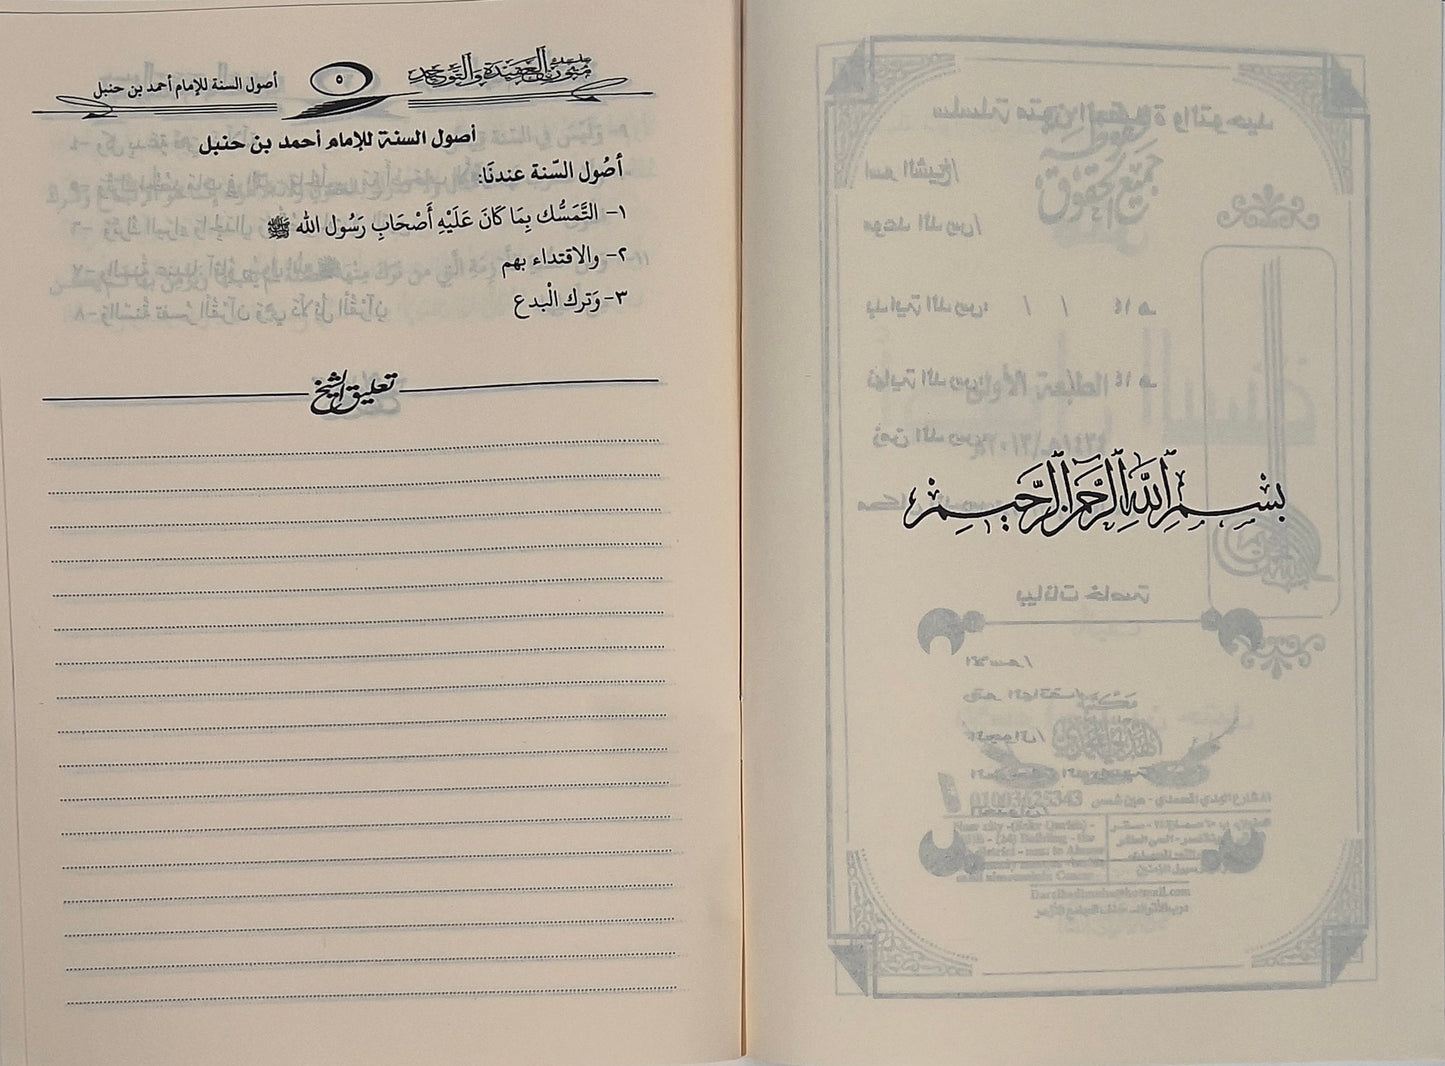 بِسْمِ اللَّهِ الرَّحْمَنِ الرَّحِيمِ
سلسلة متون العقيدة والتوحيد
٥
أصول السنة للإمام أحمد بن حنبل
أصول السنة للإمام أحمد بن حنبل
أصُول السّنة عندنَا:
١- التَّمَسُّك بِمَا كَانَ عَلَيْهِ أَصْحَابِ رَسُول الله ﷺ
٢- والاقتداء بهم
٣- وَترك الْبدع
تعليق الشيخ